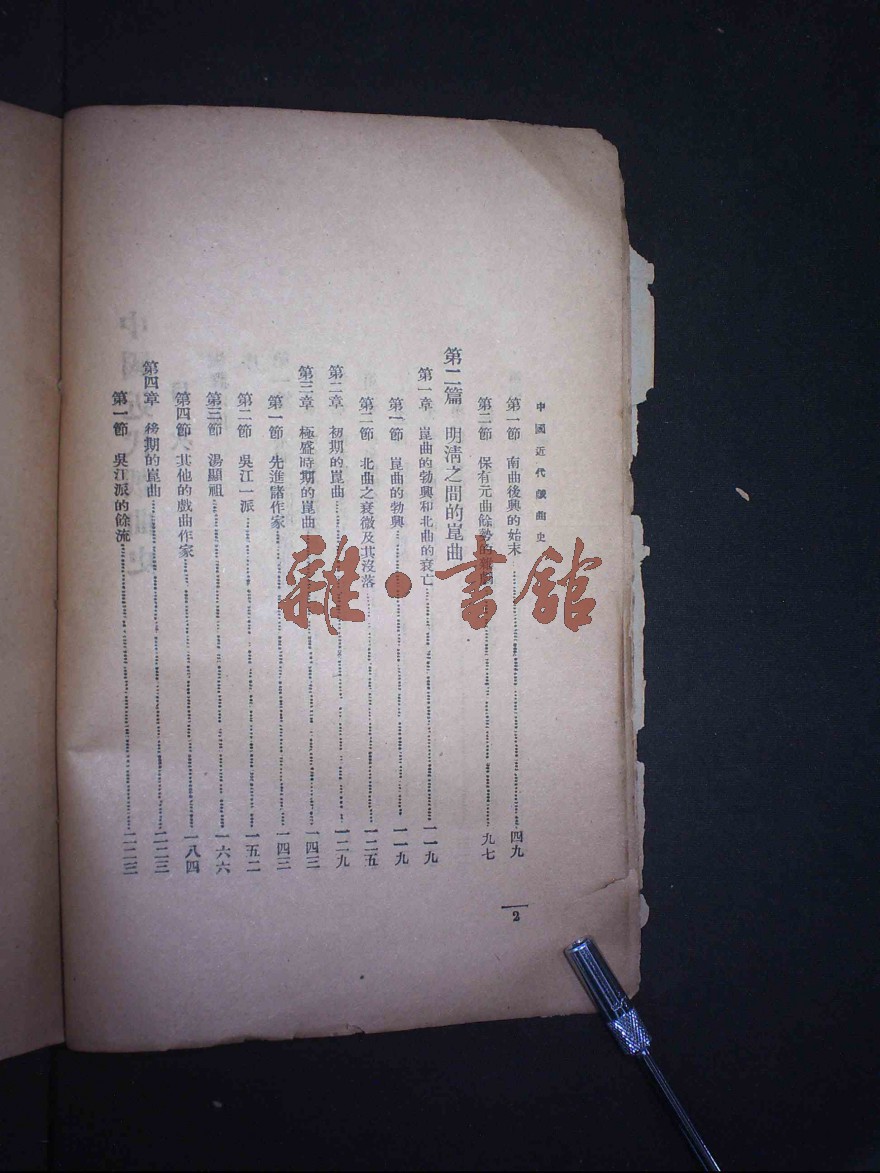 中國近代戲曲史
第一節 南曲後興的始末 四九
第二節 保有元曲餘勢的雜劇 九七
第二篇 明清之間的崑曲
第一章 崑曲的勃興和北曲的衰亡 一一九
第一節 崑曲的勃興 一一九
第二節 北曲之衰微及其沒落 一二五
第二章 初期的崑曲 一二九
第三章 極盛時期的崑曲 一四三
第一節 先進諸作家 一四三
第二節 吳江一派 一五二
第三節 湯顯祖 一六六
第四節 其他的戲曲作家 一八四
第四章 後期的崑曲 二二三
第一節 吳江派的餘流 二二三
2
雜·書館